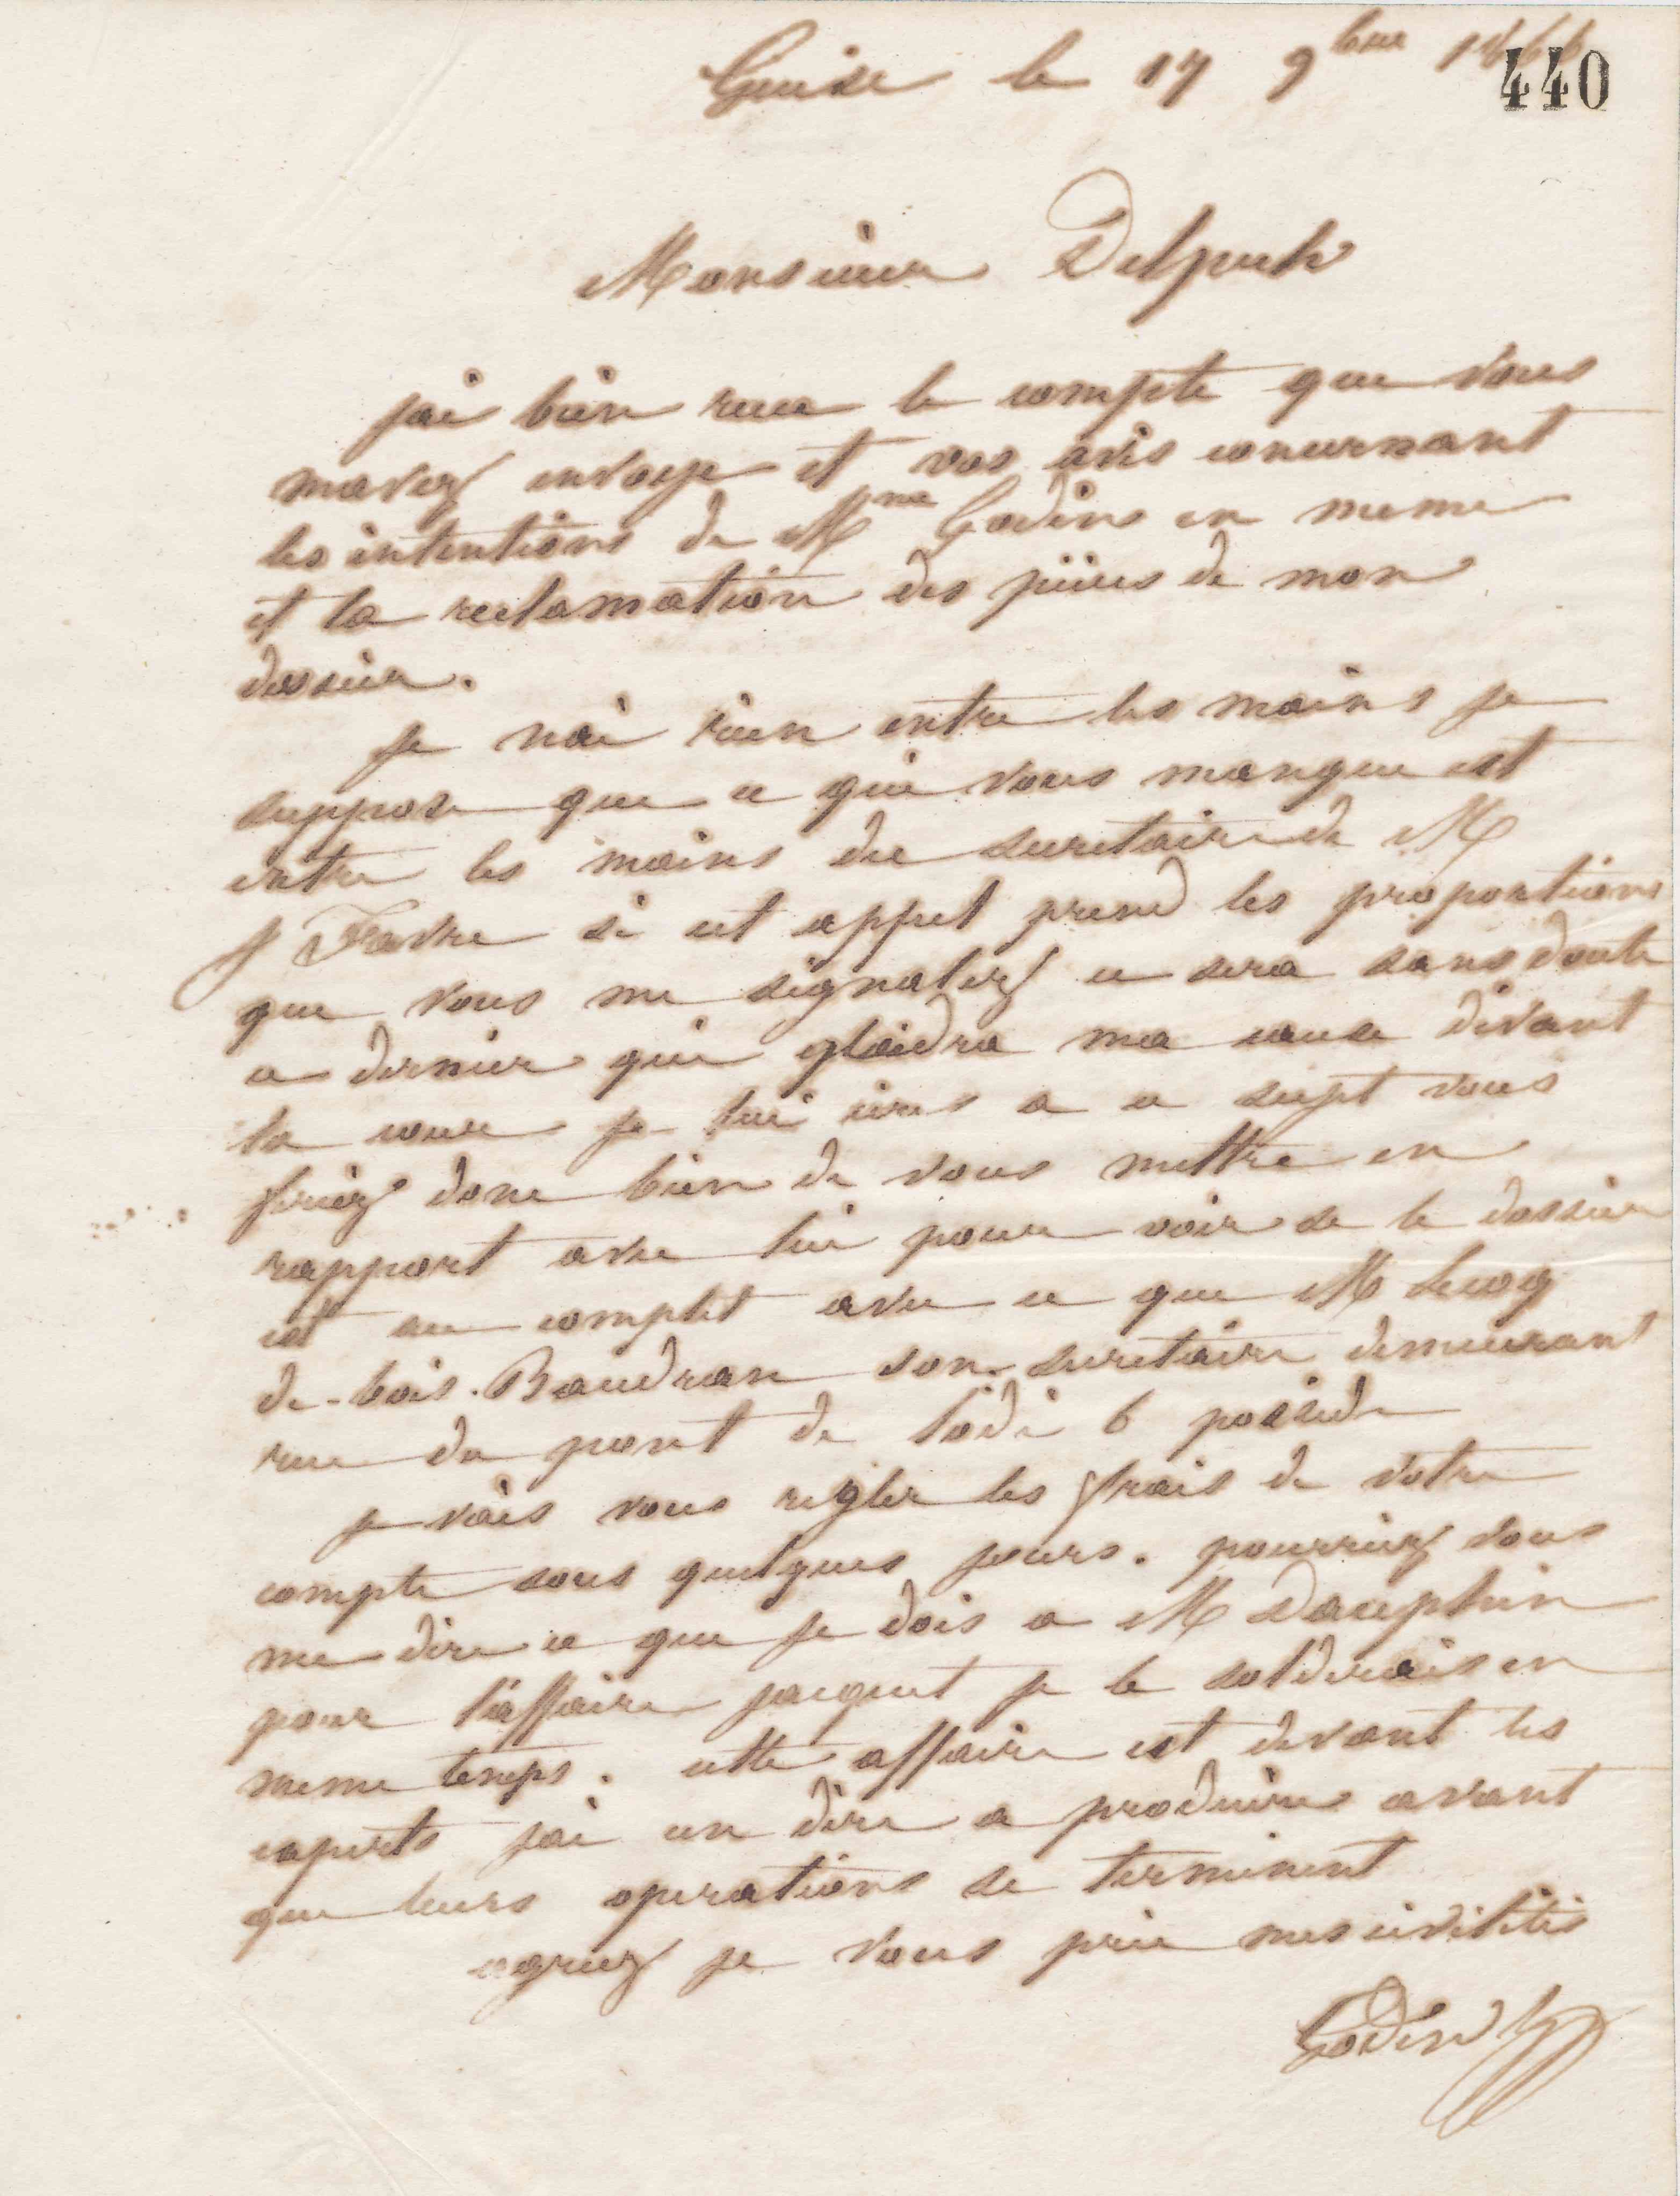 Guise le 17 9bre 1866
440
Monsieur Delpech
jai bien recu le compte que vous
mavez envoye et vos avis concernant
les intentions de Mme Godin en meme
et la reclamation des pièces de mon
dossier.
je nai rien entre les mains je
suppose que ce qui vous manque est
entre les mains du secretaire de M
J Favre si cet appel prend les proportions
que vous me signalez ce sera sans doute
ce dernier qui plaidra ma cause devant
la cour je lui ecris a ce sujet vous
feriez donc bien de vous mettre en
rapport avec lui pour voir se le dossier
est au complet avec ce que M Lecoq
de-bois. Baudran son secretaire demeurant
rue du pont de lodi 6 possede
je vais vous regler les frais de votre
compte sous quelques jours. pourriez vous
me dire ce que je dois a M Dauphin
pour l'affaire jacquet je le solderais en
meme temps. cette affaire est devant les
experts jai un dire a produire avant
que leurs operations se terminent
agreez je vous prie mes civilités
Godin